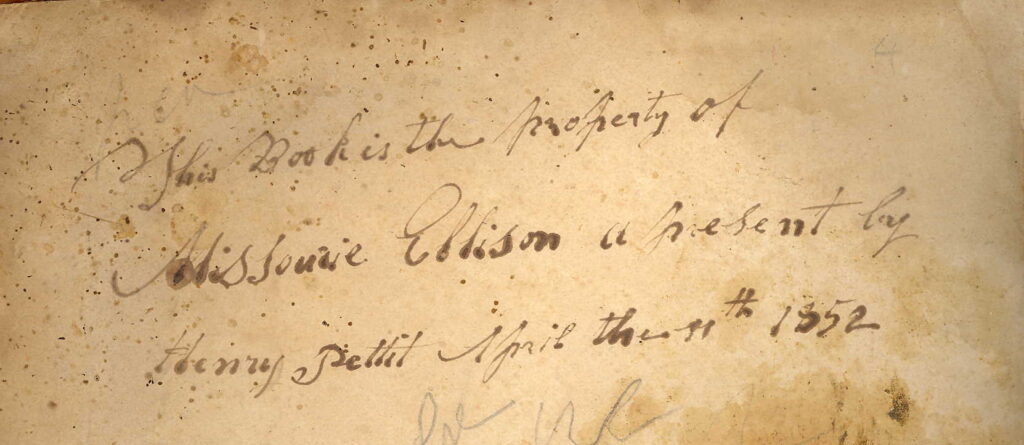 This Book is the property of
Missourie Ellison a present by
Henry Pettit April the 11th 1852